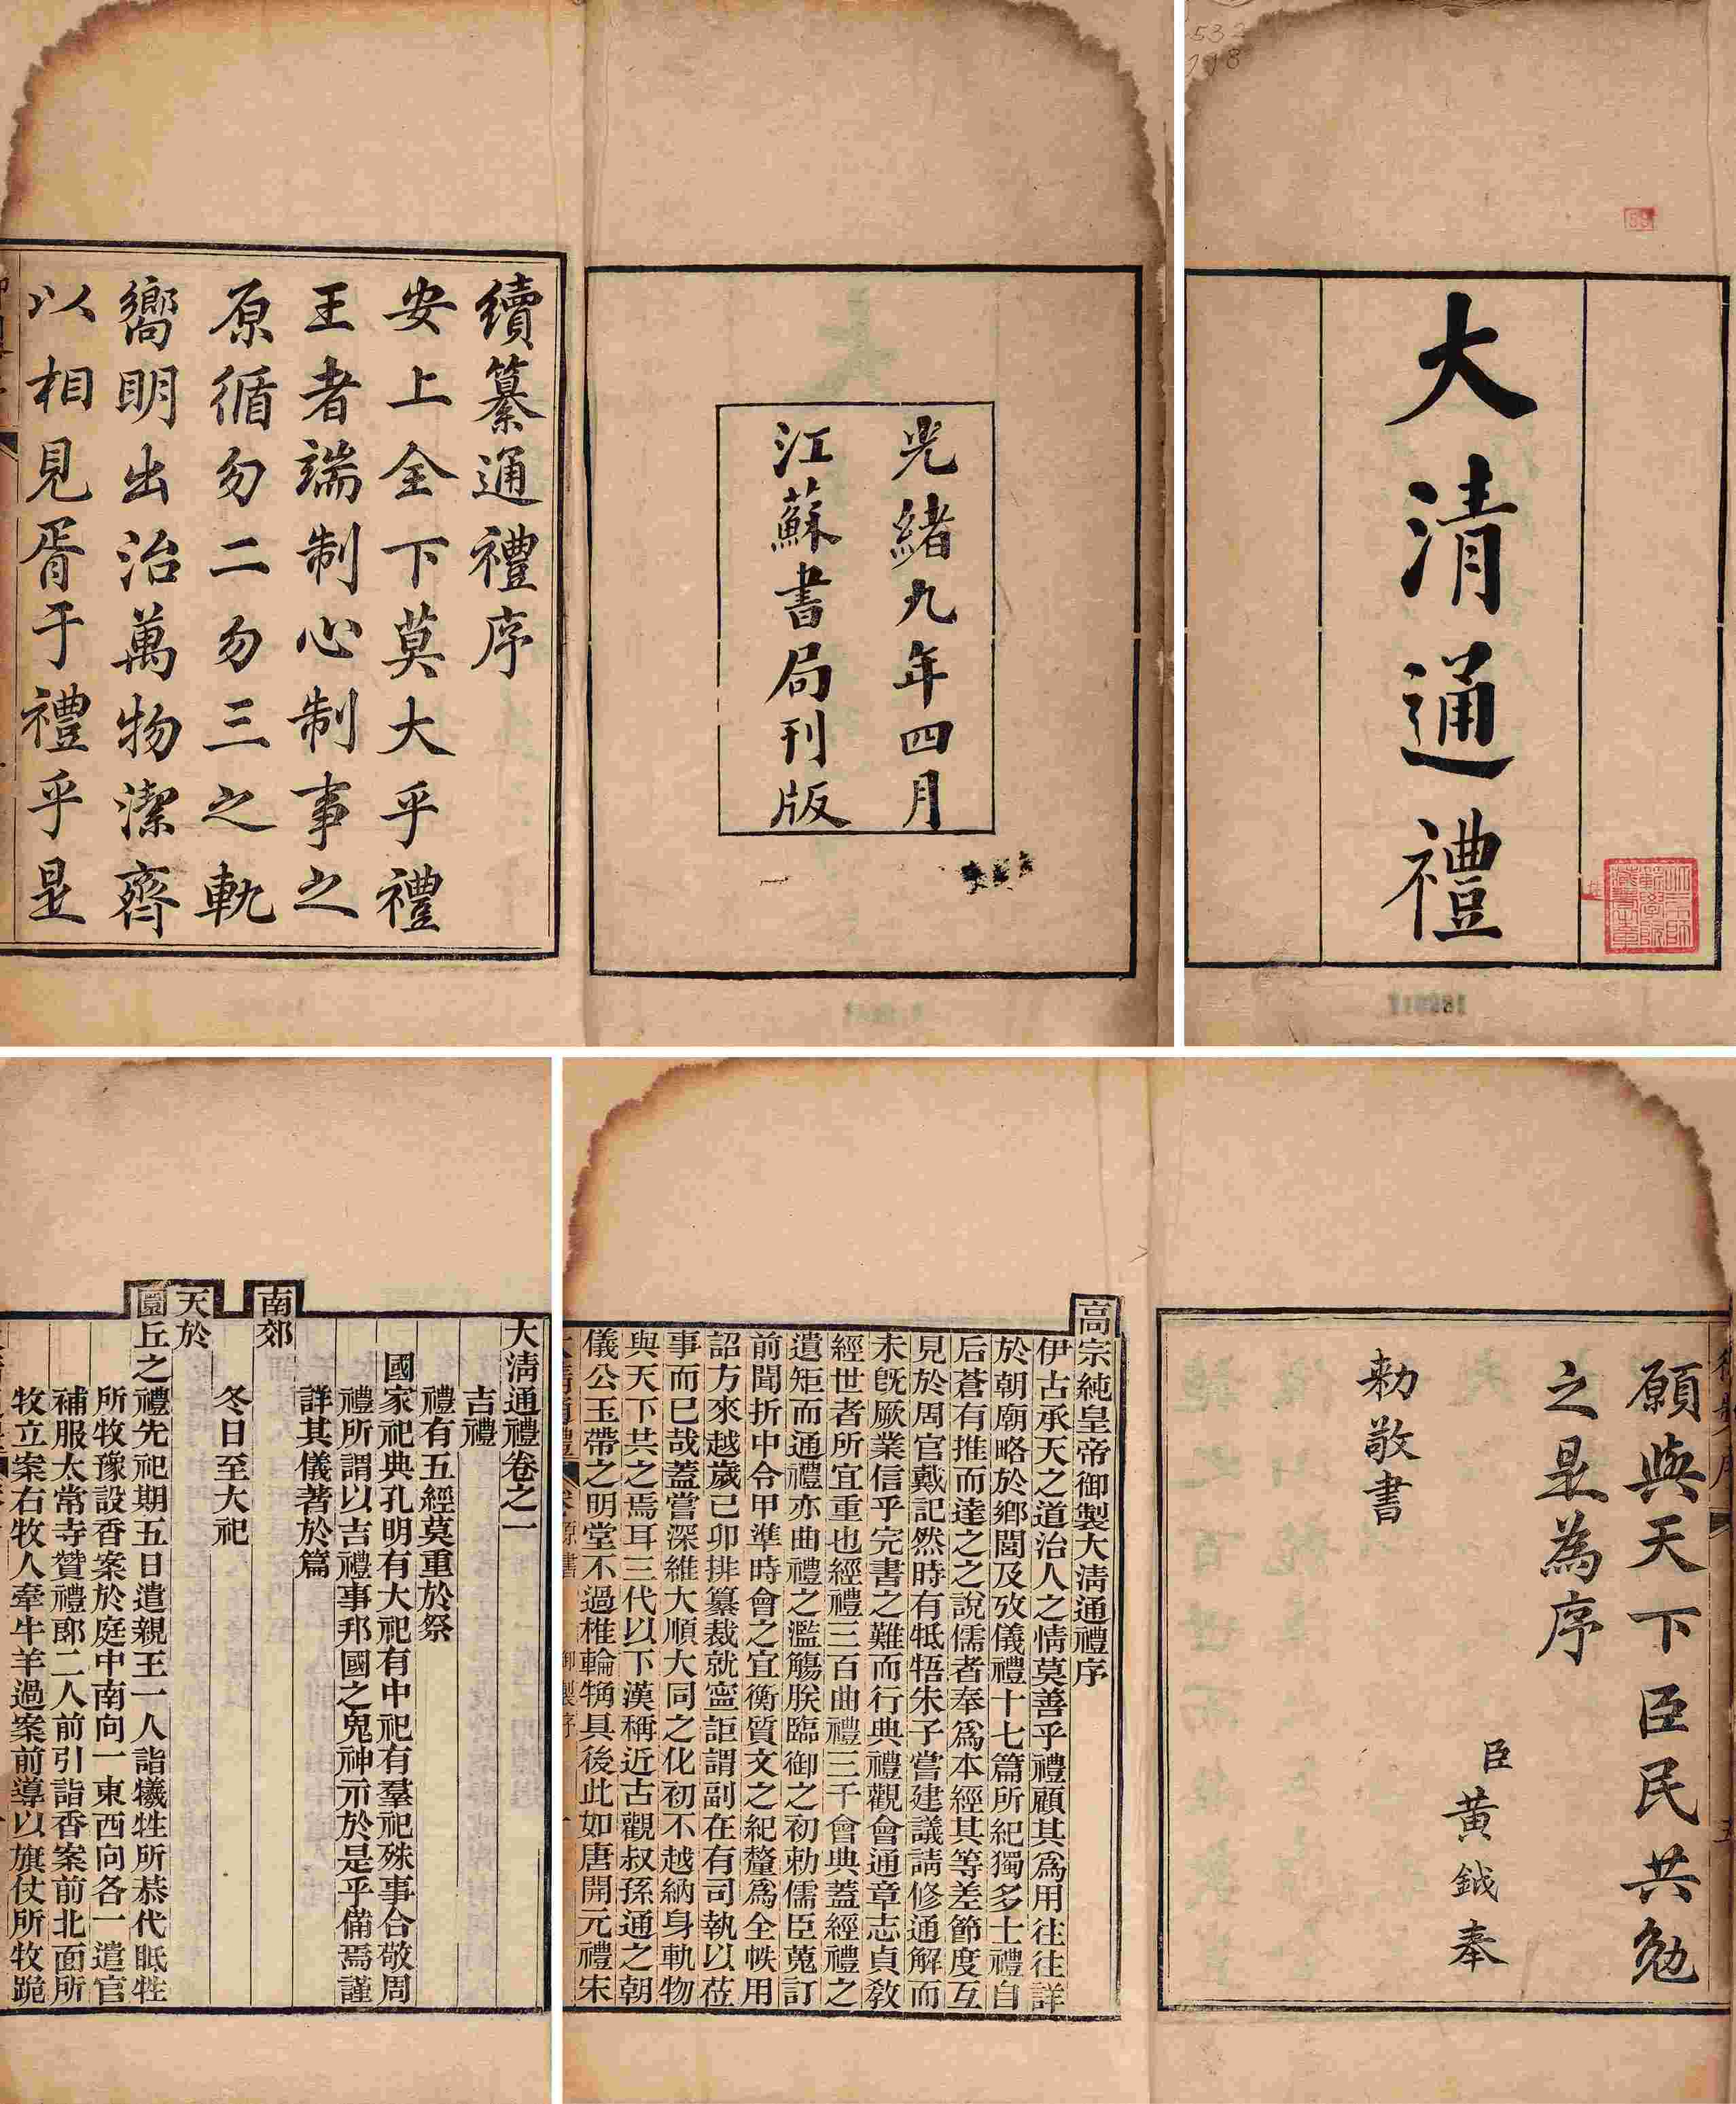 大清通禮
光緒九年四月
江蘇書局刊版
續纂通禮序
安上全下莫大乎禮
王者端制心制事之
原循勿二勿三之軌
嚮明出治萬物潔齊
以相見胥于禮乎是
願與天下臣民共勉
之是為序
臣黃鉞奉
勅敬書
高宗純皇帝御製大淸通禮序
伊古承天之道治人之情莫善乎禮顧其爲用往往詳
於朝廟略於鄉閭及攷儀禮十七篇所紀獨多士禮自
后蒼有推而達之之說儒者奉爲本經其等差節度互
見於周官戴記然時有牴牾朱子嘗建議請修通解而
未旣厥業信乎完書之難而行典禮觀會通章志貞敎
經世者所宜重也經禮三百曲禮三千會典蓋經禮之
遺矩而通禮亦曲禮之濫觴朕臨御之初勅儒臣蒐訂
前聞折中令甲準時會之宜衡質文之紀釐爲全帙用
詔方來越歲已卯排纂裁就寍詎謂副在有司執以莅
事而已哉蓋嘗深維大順大同之化初不越納身軌物
與天下共之焉耳三代以下漢稱近古觀叔孫通之朝
儀公玉帶之明堂不過椎輪觕具後此如唐開元禮宋
大淸通禮卷之一
吉禮
禮有五經莫重於祭
國家祀典孔明有大祀有中祀有羣祀殊事合敬周
禮所謂以吉禮事邦國之鬼神示於是乎備焉謹
詳其儀著於篇
南郊
冬日至大祀
天於
圜丘之禮先祀期五日遣親王一人詣犧牲所恭代眡牲
所牧豫設香案於庭中南向一東西向各一遣官
補服太常寺贊禮郞二人前引詣香案前北面所
牧立案右牧人牽牛羊過案前導以旗仗所牧跪